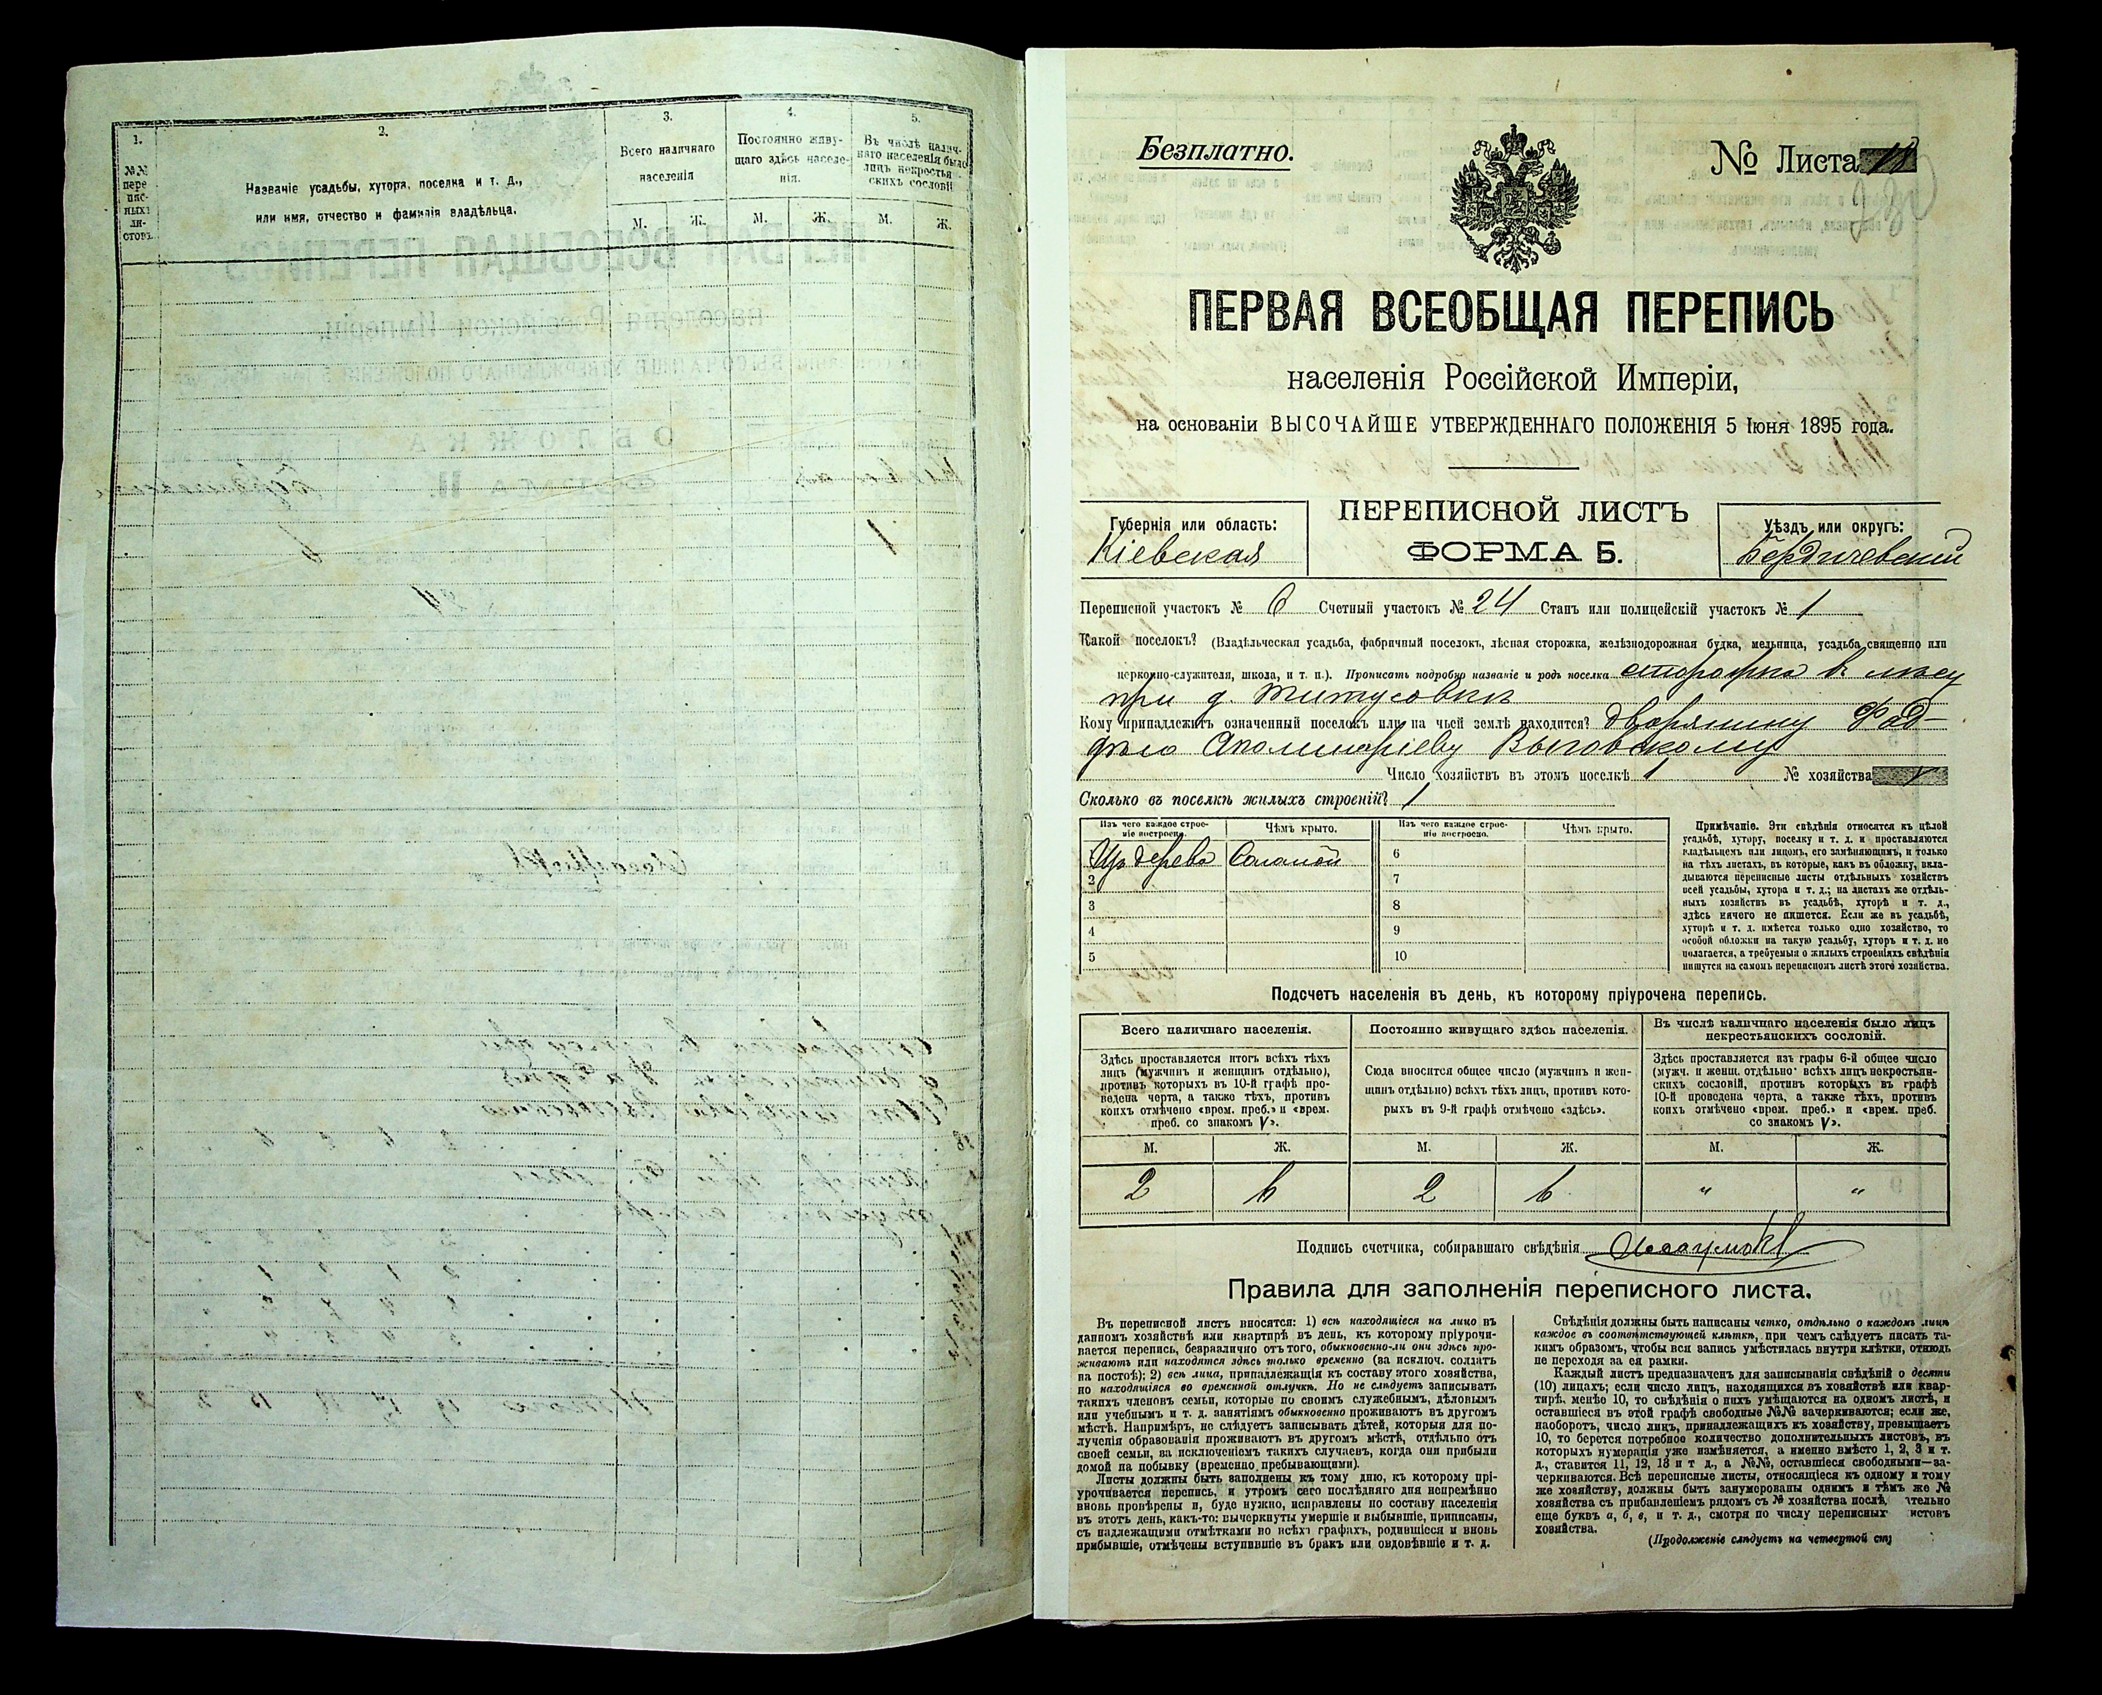 1.
№№ пере пис- ныхъ ли- стовъ.
2.
Названіе усадьбы, хутора, поселка и т. д.,
или имя, отчество и фамилія владѣльца.
3.
Всего наличнаго
населенія
М. Ж.
4.
Постоянно живу-
щаго здѣсь населе-
нія.
М. Ж.
5.
Въ числѣ налич-
наго населенія было
лицъ некрестья-
скихъ сословій
М. Ж.
Безплатно.
№ Листа 18
ПЕРВАЯ ВСЕОБЩАЯ ПЕРЕПИСЬ
населенія Россійской Имперіи,
на основаніи ВЫСОЧАЙШЕ УТВЕРЖДЕННАГО ПОЛОЖЕНІЯ 5 Іюня 1895 года.
Губернія или область:
Кіевская
ПЕРЕПИСНОЙ ЛИСТЪ
ФОРМА Б.
Уѣздъ или округъ:
Бердичевскій
Переписной участокъ № 6 Счетный участокъ № 24 Станъ или полицейскій участокъ № 1
Какой поселокъ? (Владѣльческая усадьба, фабричный поселокъ, лѣсная сторожка, желѣзнодорожная будка, мельница, усадьба священно или
церковно-служителя, школа, и т. п.). Прописать подробно названіе и родъ поселка сторожка в лѣсу
при д. Титусовкѣ
Кому принадлежитъ означенный поселокъ или на чьей землѣ находится? дворянину
Аполинаріеву Выговскому
Число хозяйствъ въ этомъ поселкѣ 1 № хозяйства
Сколько въ поселкѣ жилыхъ строеній? 1
Изъ чего каждое строе-
ніе построено.
Чѣмъ крыто.
Изъ чего каждое строе-
ніе построено.
Чѣмъ крыто.
Изъ дерева Соломой 6
2 7
3 8
4 9
5 10
Примѣчаніе. Эти свѣдѣнія относятся къ цѣлой
усадьбѣ, хутору, поселку и т. д. и проставляются
владѣльцемъ или лицомъ, его замѣняющимъ, и только
на тѣхъ листахъ, въ которые, какъ въ обложку, вкла-
дываются переписные листы отдѣльныхъ хозяйствъ
всей усадьбы, хутора и т. д.; на листахъ же отдѣль-
ныхъ хозяйствъ въ усадьбѣ, хуторѣ и т. д.,
здѣсь ничего не пишется. Если же въ усадьбѣ,
хуторѣ и т. д. имѣется только одно хозяйство, то
особой обложки на такую усадьбу, хуторъ и т. д. не
полагается, а требуемыя о жилыхъ строеніяхъ свѣдѣнія
пишутся на самомъ переписномъ листѣ этого хозяйства.
Подсчетъ населенія въ день, къ которому пріурочена перепись.
Всего наличнаго населенія.
Здѣсь проставляется итогъ всѣхъ тѣхъ
лицъ (мужчинъ и женщинъ отдѣльно),
противъ которыхъ въ 10-й графѣ про-
ведена черта, а также тѣхъ, противъ
коихъ отмѣчено «врем. преб.» и «врем.
преб. со знакомъ V».
Постоянно живущаго здѣсь населенія.
Сюда вносится общее число (мужчинъ и жен-
щинъ отдѣльно) всѣхъ тѣхъ лицъ, противъ кото-
рыхъ въ 9-й графѣ отмѣчено «здѣсь».
Въ числѣ наличнаго населенія было лицъ
некрестьянскихъ сословій.
Здѣсь проставляется изъ графы 6-й общее число
(мужч. и женщ. отдѣльно) всѣхъ лицъ некрестьян-
скихъ сословій, противъ которыхъ въ графѣ
10-й проведена черта, а также тѣхъ, противъ
коихъ отмѣчено «врем. преб.» и «врем. преб.
со знакомъ V».
М. Ж. М. Ж. М. Ж.
2 6 2 6 „ „
Подпись счетчика, собиравшаго свѣдѣнія
Правила для заполненія переписного листа.
Въ переписной листъ вносятся: 1) всѣ находящіеся на лицо въ
данномъ хозяйствѣ или квартирѣ въ день, къ которому пріурочи-
вается перепись, безразлично отъ того, обыкновенно-ли они здѣсь про-
живаютъ или находятся здѣсь только временно (за исключ. солдатъ
на постоѣ); 2) всѣ лица, принадлежащія къ составу этого хозяйства,
но находящіяся во временной отлучкѣ. Но не слѣдуетъ записывать
такихъ членовъ семьи, которые по своимъ служебнымъ, дѣловымъ
или учебнымъ и т. д. занятіямъ обыкновенно проживаютъ въ другомъ
мѣстѣ. Напримѣръ, не слѣдуетъ записывать дѣтей, которыя для по-
лученія образованія проживаютъ въ другомъ мѣстѣ, отдѣльно отъ
своей семьи, за исключеніемъ такихъ случаевъ, когда они прибыли
домой на побывку (временно пребывающими).
Листы должны быть заполнены къ тому дню, къ которому прі-
урочивается перепись, и утромъ сего послѣдняго дня непремѣнно
вновь провѣрены и, буде нужно, исправлены по составу населенія
въ этотъ день, какъ-то: вычеркнуты умершіе и выбывшіе, приписаны,
съ надлежащими отмѣтками во всѣхъ графахъ, родившіеся и вновь
прибывшіе, отмѣчены вступившіе въ бракъ или овдовѣвшіе и т. д.
Свѣдѣнія должны быть написаны четко, отдѣльно о каждомъ лицѣ
каждое въ соотвѣтствующей клѣткѣ, при чемъ слѣдуетъ писать та-
кимъ образомъ, чтобы вся запись умѣстилась внутри клѣтки, отнюдь
не переходя за ея рамки.
Каждый листъ предназначенъ для записыванія свѣдѣній о десяти
(10) лицахъ; если число лицъ, находящихся въ хозяйствѣ или квар-
тирѣ, менѣе 10, то свѣдѣнія о нихъ умѣщаются на одномъ листѣ, и
оставшіеся въ этой графѣ свободные №№ зачеркиваются; если же,
наоборотъ, число лицъ, принадлежащихъ къ хозяйству, превышаетъ
10, то берется потребное количество дополнительныхъ листовъ, въ
которыхъ нумерація уже измѣняется, а именно вмѣсто 1, 2, 3 и т.
д., ставится 11, 12, 13 и т д., а №№, оставшіеся свободными—за-
черкиваются. Всѣ переписные листы, относящіеся къ одному и тому
же хозяйству, должны быть занумерованы однимъ и тѣмъ же №
хозяйства съ прибавленіемъ рядомъ съ № хозяйства послѣ
еще буквъ а, б, в, и т. д., смотря по числу переписных
хозяйства.
(Продолженіе слѣдуетъ на четвертой ст